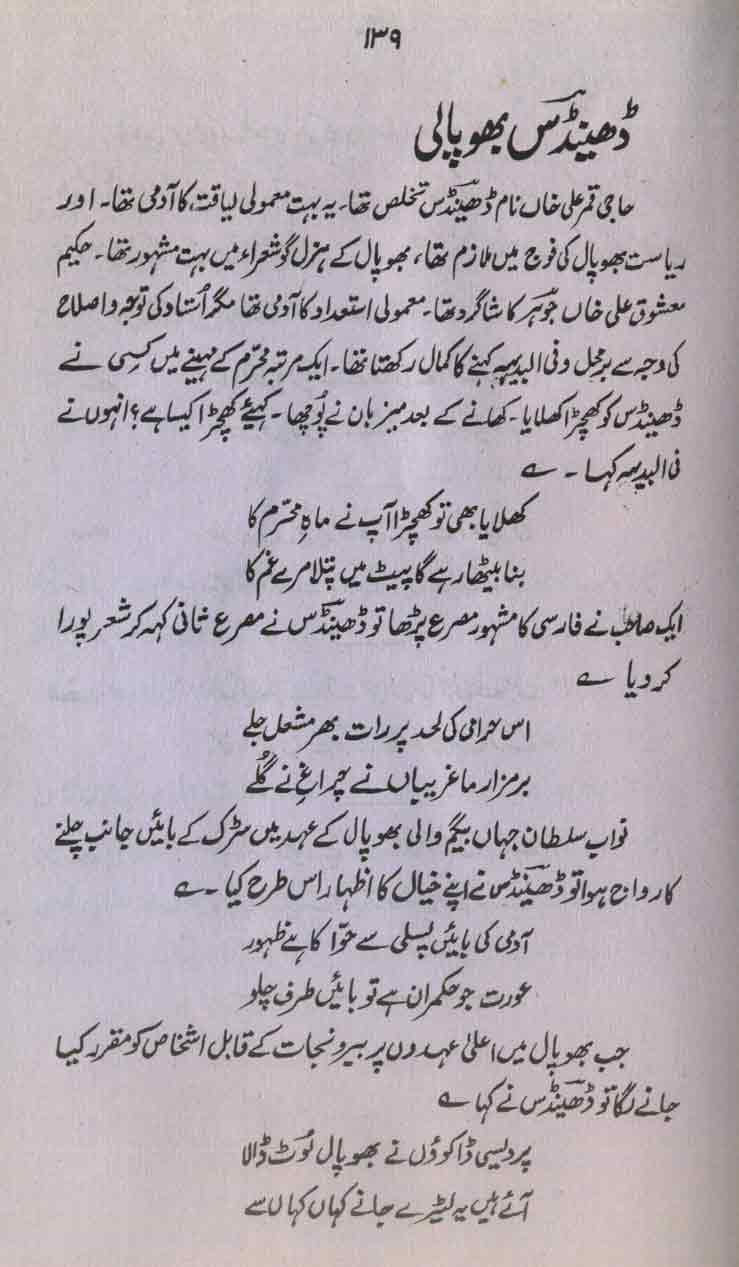 ۱۳۹
ڈھینڈس بھوپالی
حاجی قمر علی خاں نام ڈھینڈس تخلص تھا۔ یہ بہت معمولی لیاقت کا آدمی تھا۔ اور
ریاست بھوپال کی فوج میں ملازم تھا، بھوپال کے ہنرل گو شعراء میں بہت مشہور تھا۔ حکیم
معشوق علی خاں جوہر کا شاگرد تھا۔ معمولی استعداد کا آدمی تھا مگر اُستاد کی توجہ و اصلاح
کی وجہ سے برمحل و فی البدیہہ کہنے کا کمال رکھتا تھا۔ ایک مرتبہ محرّم کے مہینے میں کسی نے
ڈھینڈس کو کھچڑا کھلایا۔ کھانے کے بعد میزبان نے پُوچھا۔ کہیئے کھچڑا کیسا ہے؟ انہوں نے
فی البدیہہ کہا ۔ ؎
کھلایا بھی تو کھچڑا آپ نے ماہِ محترم کا
بنا بیٹھا رہے گا پیٹ میں پتلا مرے غم کا
ایک صاحب نے فارسی کا مشہور مصرع پڑھا تو ڈھینڈس نے مصرع ثانی کہہ کر شعر پورا
کر دیا ؎
اس حرامی کی لحد پر رات بھر مشعل جلے
بر مزار ما غریباں نے چراغِ نے گُلے
نواب سلطان جہاں بیگم والی بھوپال کے عہد میں سڑک کے بائیں جانب چلنے
کا رواج ہوا تو ڈھینڈس نے اپنے خیال کا اظہار اس طرح کیا ۔ ؎
آدمی کی بائیں پسلی سے حوّا کا ہے ظہور
عورت جو حکمران ہے تو بائیں طرف چلو
جب بھوپال میں اعلیٰ عہدوں پر بیرونجات کے قابل اشخاص کو مقرر کیا
جانے لگا تو ڈھینڈس نے کہا ؎
پردیسی ڈاکوؤں نے بھوپال لُوٹ ڈالا
آئے ہیں یہ لٹیرے جانے کہاں کہاں سے